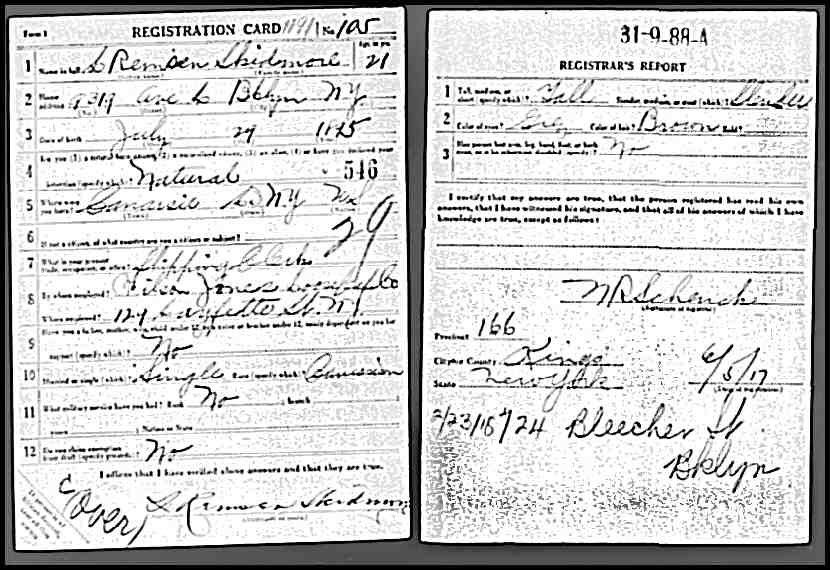 Form 1 REGISTRATION CARD No. 105
Age, in yrs.
1 Name in full S Remsen Skidmore 21
(Given name) (Family name)
2 Home address 9319 Ave L Bklyn NY
(No.) (Street) (City) (State)
3 Date of birth July 29 1895
(Month) (Day) (Year)
4 Are you (1) a natural born citizen, (2) a naturalized citizen, (3) an alien, (4) or have you declared your
intention (specify which)? Natural 546
5 Where were you born? Canarsie NY
(Town) (State) (Nation)
29
6 If not a citizen, of what country are you a citizen or subject?
7 What is your present trade, occupation, or office? Shipping Clerk
8 By whom employed? Wilson Jones Looseleaf Co
Where employed? 124 Lafayette St. N
9 Have you a father, mother, wife, child under 12, or a sister or brother under 12, solely dependent on you for
support (specify which)? No
10 Married or single (which)? Single Race (specify which)? Caucasian
11 What military service have you had? Rank No ; branch
years ; Nation or State
12 Do you claim exemption from draft (specify grounds)? No
I affirm that I have verified above answers and that they are true.
S Remsen Skidmore
(Signature or mark)
(Over)
31-9-88-A
REGISTRAR'S REPORT
1 Tall, medium, or short (specify which)? Tall Slender, medium, or stout (which)? Slender
2 Color of eyes? Grey Color of hair? Brown Bald?
3 Has person lost arm, leg, hand, foot, or both eyes, or is he otherwise disabled (specify)? No
I certify that my answers are true, that the person registered has read his own
answers, that I have witnessed his signature, and that all of his answers of which I have
knowledge are true, except as follows:
N R Schenck
(Signature of registrar)
Precinct 166
City or County Kings
State New York 6/5/17
(Date of registration)
2/23/18 724 Bleecker St
Bklyn